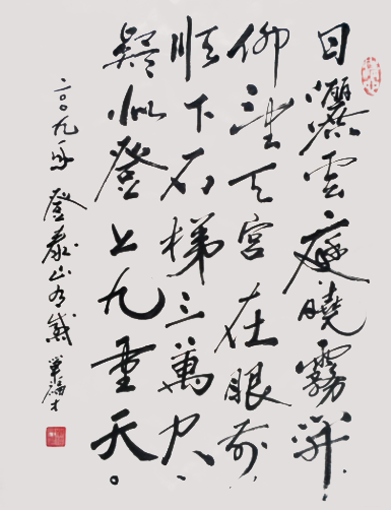 日灑雲庭曉霧開，
仰望天宮在眼前，
順下石梯三萬尺、
疑似登上九重天。
二〇〇九年 登泰山有感